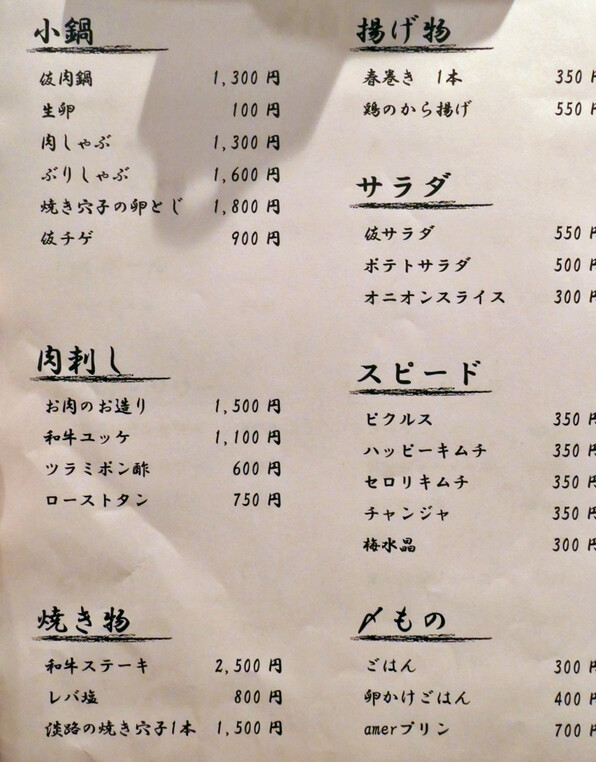 小鍋
伎肉鍋 1,300 円
生卵 100 円
肉しゃぶ 1,300 円
ぶりしゃぶ 1,600 円
焼き穴子の卵とじ 1,800 円
伎チゲ 900 円
肉刺し
お肉のお造り 1,500 円
和牛ユッケ 1,100 円
ツラミポン酢 600 円
ローストタン 750 円
焼き物
和牛ステーキ 2,500 円
レバ塩 800 円
淡路の焼き穴子1本 1,500 円
揚げ物
春巻き 1本 350 円
鶏のから揚げ 550 円
サラダ
伎サラダ 550 円
ポテトサラダ 500 円
オニオンスライス 300 円
スピード
ピクルス 350 円
ハッピーキムチ 350 円
セロリキムチ 350 円
チャンジャ 350 円
梅水晶 300 円
〆もの
ごはん 300 円
卵かけごはん 400 円
amerプリン 700 円